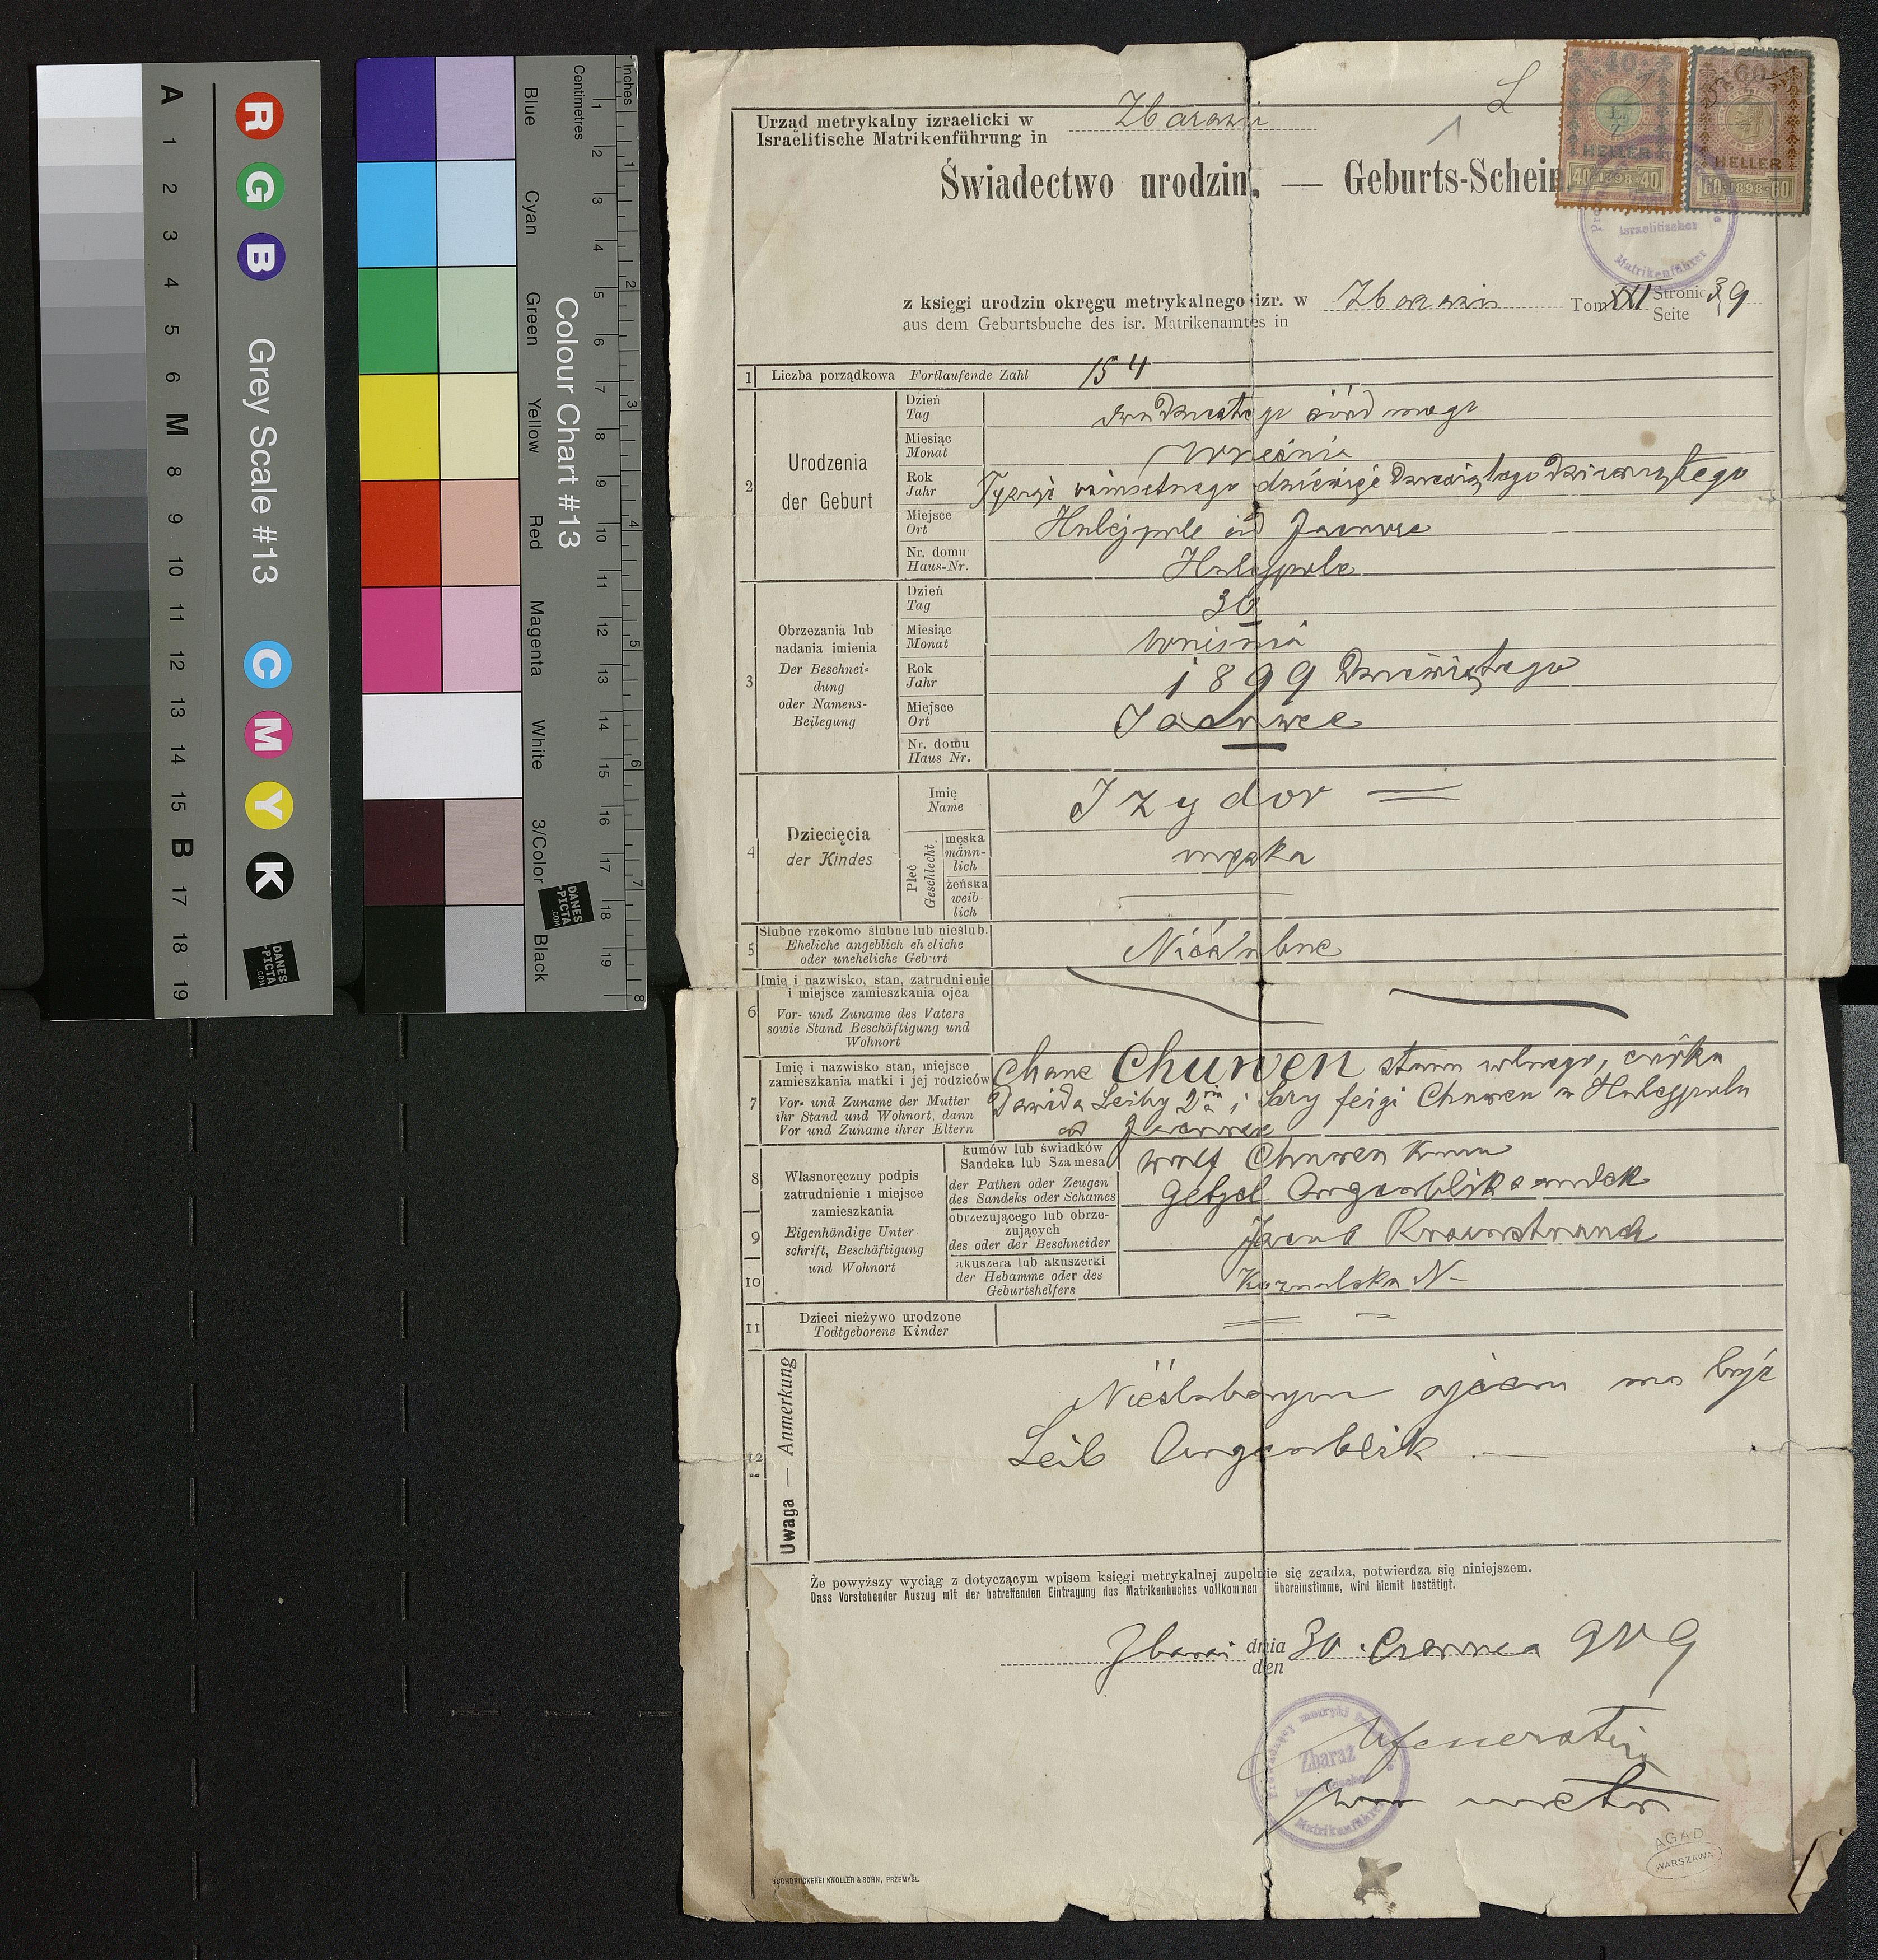 A 1 2 3 4 5 6 M 8 9 10 11 12 13 14 15 B 17 18 19
R G B Grey Scale #13 C M Y K
DANES
-PICTA
.COM
Blue Cyan Green Yellow Red Magenta White 3/Color Black
Colour Chart #13
Centimetres 1 2 3 4 5 6 7 8 9 10 11 12 13 14 15 16 17 18 19
Inches 1 2 3 4 5 6 7 8
DANES
-PICTA
.COM
L
Urząd metrykalny izraelicki w
Israelitische Matrikenführung in
Zbarażu
Świadectwo urodzin. — Geburts-Schein
40
HELLER
40·1898·40
60
HELLER
60·1898·60
Israelitischer
Matrikenführer
z księgi urodzin okręgu metrykalnego izr. w Zbarażu Tom XXI Stronica 39
aus dem Geburtsbuche des isr. Matrikenamtes in Seite
1 Liczba porządkowa Fortlaufende Zahl 154
2 Urodzenia
der Geburt
Dzień
Tag
dwudziestego siódmego
Miesiąc
Monat
Września
Rok
Jahr
Tysiąc ośmsetnego dziewięćdziesiątego dziewiątego
Miejsce
Ort
Hulejpole ad Jacowce
Nr. domu
Haus-Nr.
Hulejpole
3 Obrzezania lub
nadania imienia
Der Beschnei-
dung
oder Namens-
Beilegung
Dzień
Tag
30
Miesiąc
Monat
Września
Rok
Jahr
1899 Dziewiątego
Miejsce
Ort
Jacowce
Nr. domu
Haus Nr.
4 Dziecięcia
der Kindes
Imię
Name
Izydor
Płeć
Geschlecht
męska
männ-
lich
męska
żeńska
weib-
lich
5 Ślubne rzekomo ślubne lub nieślub.
Eheliche angeblich eheliche
oder uneheliche Geburt
Nieślubne
6 Imię i nazwisko, stan, zatrudnienie
i miejsce zamieszkania ojca
Vor- und Zuname des Vaters
sowie Stand Beschäftigung und
Wohnort
7 Imię i nazwisko stan, miejsce
zamieszkania matki i jej rodziców
Vor- und Zuname der Mutter
ihr Stand und Wohnort, dann
Vor und Zuname ihrer Eltern
Chane Chuwen stanu wolnego, córka
Dawida Leiby 2im i Sary feigi Chuwen w Hulejpolu
ad Jacowce
8 9 10 Własnoręczny podpis
zatrudnienie i miejsce
zamieszkania
Eigenhändige Unter-
schrift, Beschäftigung
und Wohnort
kumów lub świadków
Sandeka lub Szamesa
der Pathen oder Zeugen
des Sandeks oder Schames
Wolf Chuwen Kum
Getzel Orgonblik sandek
obrzezującego lub obrze-
zujących
des oder der Beschneider
Jacub
akuszera lub akuszerki
der Hebamme oder des
Geburtshelfers
Kowalska N
11 Dzieci nieżywo urodzone
Todtgeborene Kinder
12 Uwaga — Anmerkung
Nieślubnym ojcem ma być
Leib Orgonblik.
Że powyższy wyciąg z dotyczącym wpisem księgi metrykalnej zupełnie się zgadza, potwierdza się niniejszem.
Dass Vorstehender Auszug mit der betreffenden Eintragung des Matrikenbuches vollkommen übereinstimme, wird hiemit bestätigt.
Zbaraż dnia 30 Czerwca 909
den
Prowadzący metryki
Zbaraż
Israelitischer
Matrikenführer
BUCHDRUCKEREI KNOLLER & SOHN, PRZEMYŚL.
AGAD
WARSZAWA